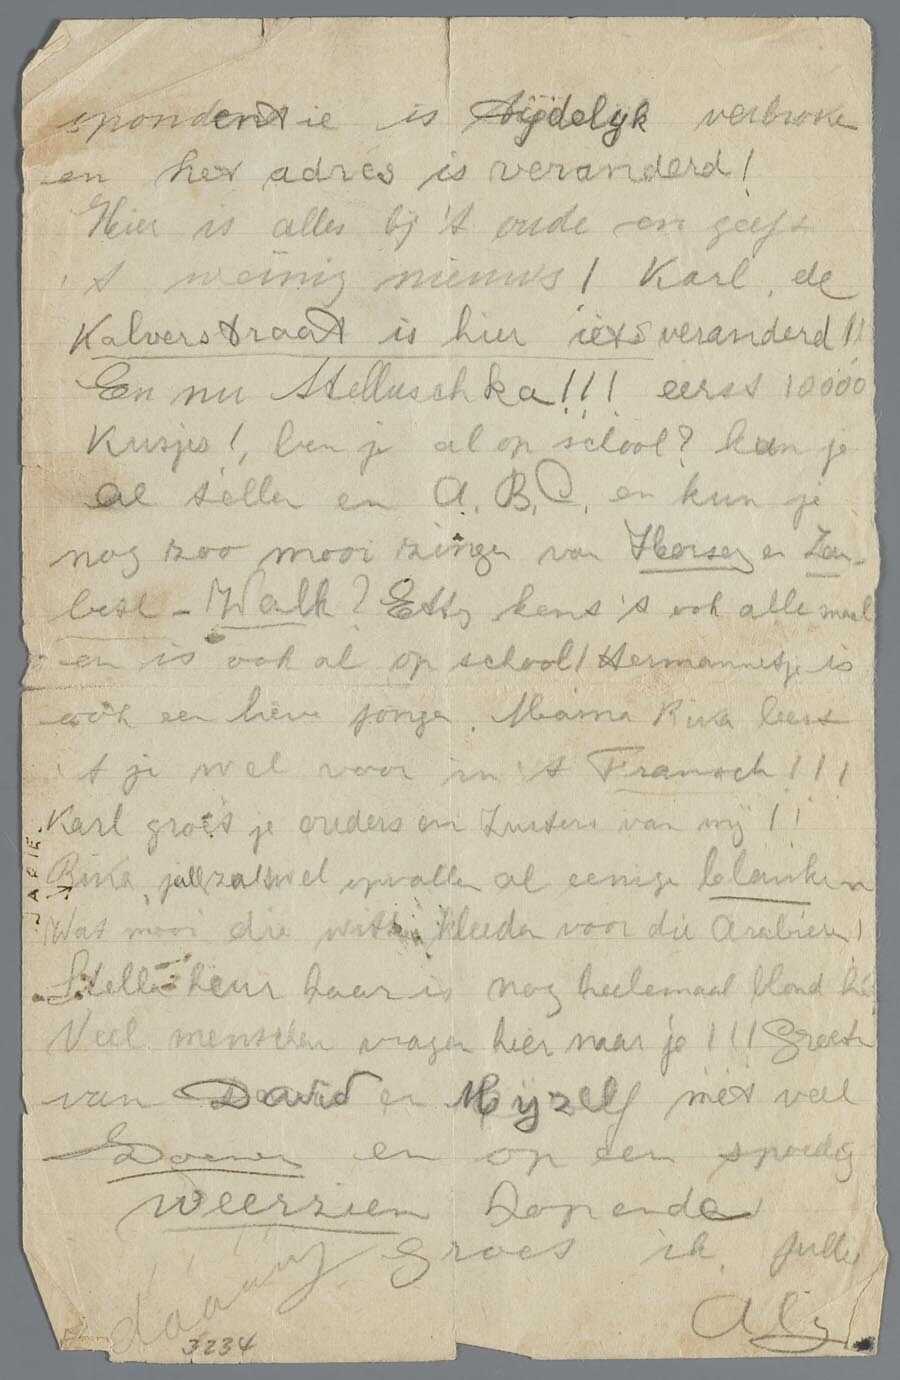 spondentie is tijdelyk verbroke
en het adres is veranderd!
Hier is alles bij 't oude en geeft
't weinig nieuws! Karl, de
Kalverstraat is hier iets veranderd!!
En nu Stelluschka!!! eerst 10000
Kusjes!, ben je al op school? kun je
al tellen en A, B, C, en kun je
nog zoo mooi zingen van
Walk? Etty kent 't ook allemaal
en is ook al op school! Hermannetje is
ook een lieve jongen. Mama Rika leest
't je wel voor in 't Fransch!!!
Karl groet je ouders en Zusters van mij!!
Rika, jullie zal 't wel opvallen al eenige blanken
Wat mooi die witte kleeden voor die Arabieren!
Stella heur haar is nog heelemaal blond hé
Veel menschen vragen hier naar je!!! Groeten
van David en Mijzelf met veel
en op een spoedig
weerzien hopende
groet ik jullie
Aly
daaaag
JAPIE.
3234